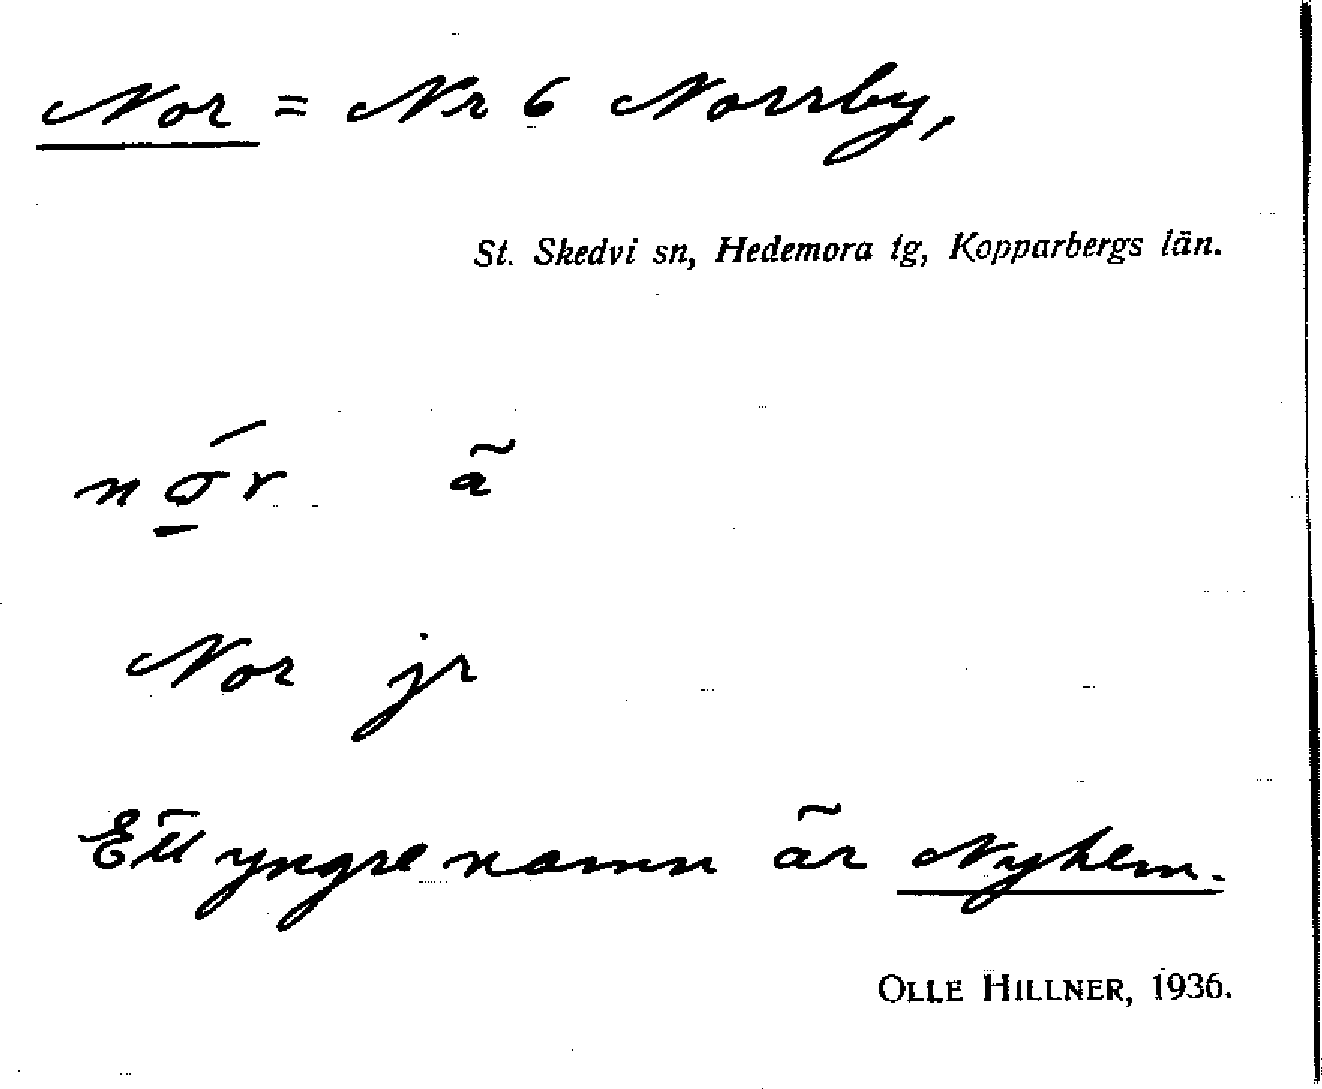 Nor = Nr 6 Norrby,
St. Skedvi sn, Hedemora tg, Kopparbergs län.
nó̱r ã
Nor jr
Ett yngre namn är Nyhem.
OLLE HILLNER, 1936.